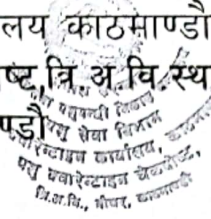 लय काठमाण्डौ
ष्ट, त्रि.अ.वि.स्थ
ण्डौ
पशु सेवा विभाग
क्वारेन्टाइन कार्यालय,
पशु क्वारेन्टाइन चेकपोष्ट,
त्रि.अ.वि., गौचर, काठमाण्डौ